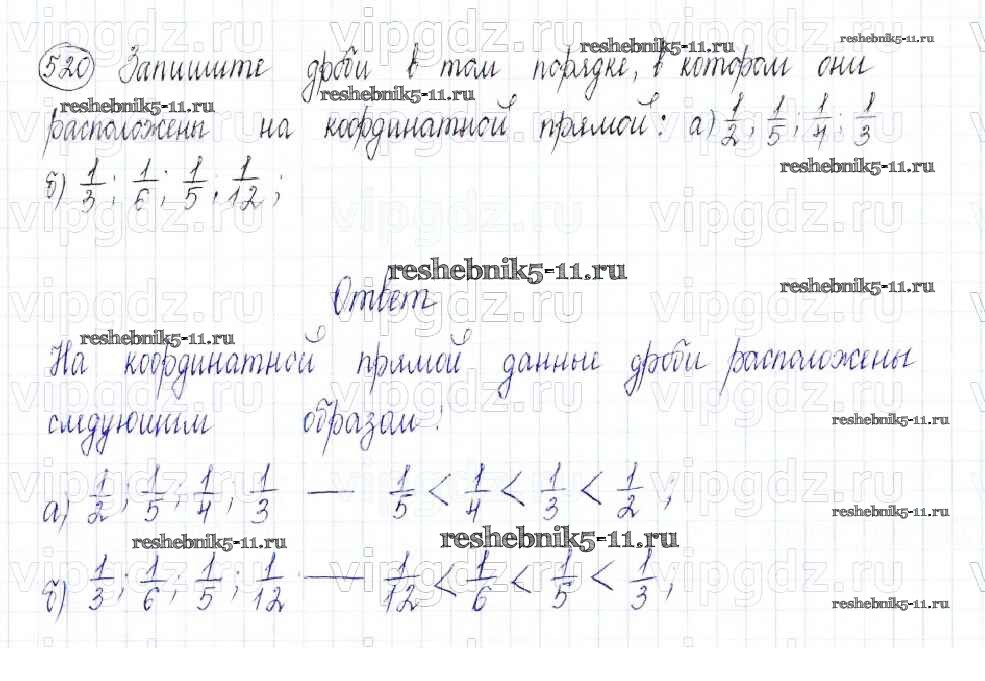 520 Запишите дроби в том порядке, в котором они
расположены на координатной прямой: а) 1/2; 1/5; 1/4; 1/3
б) 1/3; 1/6; 1/5; 1/12;
Ответ
На координатной прямой данные дроби расположены
следующим образом:
а) 1/2; 1/5; 1/4; 1/3 — 1/5 < 1/4 < 1/3 < 1/2;
б) 1/3; 1/6; 1/5; 1/12 — 1/12 < 1/6 < 1/5 < 1/3;
reshebnik5-11.ru
vipgdz.ru